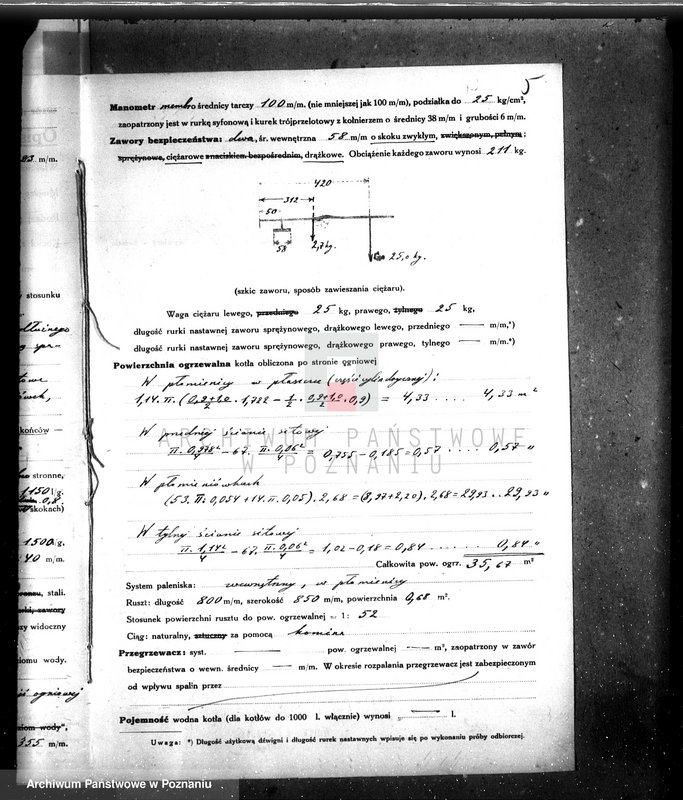 5
Manometr membr o średnicy tarczy 100 m/m. (nie mniejszej jak 100 m/m), podziałka do 25 kg/cm²,
zaopatrzony jest w rurkę syfonową i kurek trójprzelotowy z kołnierzem o średnicy 38 m/m i grubości 6 m/m.
Zawory bezpieczeństwa: dwa, śr. wewnętrzna 58 m/m o skoku zwykłym, zwiększonym, pełnym;
sprężynowe, ciężarowe z naciskiem bezpośrednim, drążkowe. Obciążenie każdego zaworu wynosi 211 kg.
420
312
50
58
2,7 kg.
25,0 kg.
(szkic zaworu, sposób zawieszania ciężaru).
Waga ciężaru lewego, przedniego 25 kg, prawego, tylnego 25 kg,
długość rurki nastawnej zaworu sprężynowego, drążkowego lewego, przedniego — m/m,*)
długość rurki nastawnej zaworu sprężynowego, drążkowego prawego, tylnego — m/m.*)
Powierzchnia ogrzewalna kotła obliczona po stronie ogniowej
W płomienicy w płaszczu (część cylindrycznej):
1,14.π.(0,9+1,0/2 . 1,722 - 1/2 . 0,9+1,0/2 . 0,9) = 4,33 .... 4,33 m²
W przedniej ścianie sitowej
π.0,978²/4 - 67. π.0,06²/4 = 0,755 - 0,185 = 0,57 .... 0,57 "
W płomieniówkach
(53.π.0,054 + 14.π.0,05).2,68 = (8,97+2,20).2,68 = 29,93 .. 29,93 "
W tylnej ścianie sitowej
π.1,14²/4 - 67. π.0,06²/4 = 1,02 - 0,18 = 0,84 ...... 0,84 "
Całkowita pow. ogrz. 35,67 m²
System paleniska: wewnętrzny, w płomienicy
Ruszt: długość 800 m/m, szerokość 850 m/m, powierzchnia 0,68 m².
Stosunek powierzchni rusztu do pow. ogrzewalnej = 1: 52
Ciąg: naturalny, sztuczny za pomocą komina
Przegrzewacz: syst. — pow. ogrzewalnej — m², zaopatrzony w zawór
bezpieczeństwa o wewn. średnicy — m/m. W okresie rozpalania przegrzewacz jest zabezpieczonym
od wpływu spalin przez
Pojemność wodna kotła (dla kotłów do 1000 l. włącznie) wynosi — l.
Uwaga: *) Długość użytkową dźwigni i długość rurek nastawnych wpisuje się po wykonaniu próby odbiorczej.
m/m.
stosunku
końców —
stronne,
1150 l/g.
skokach)
1500/g.
40 m/m.
stali.
zawory
widoczny
wody.
ogniowej
wody",
355 m/m.
ARCHIWUM PAŃSTWOWE
W POZNANIU
Archiwum Państwowe w Poznaniu